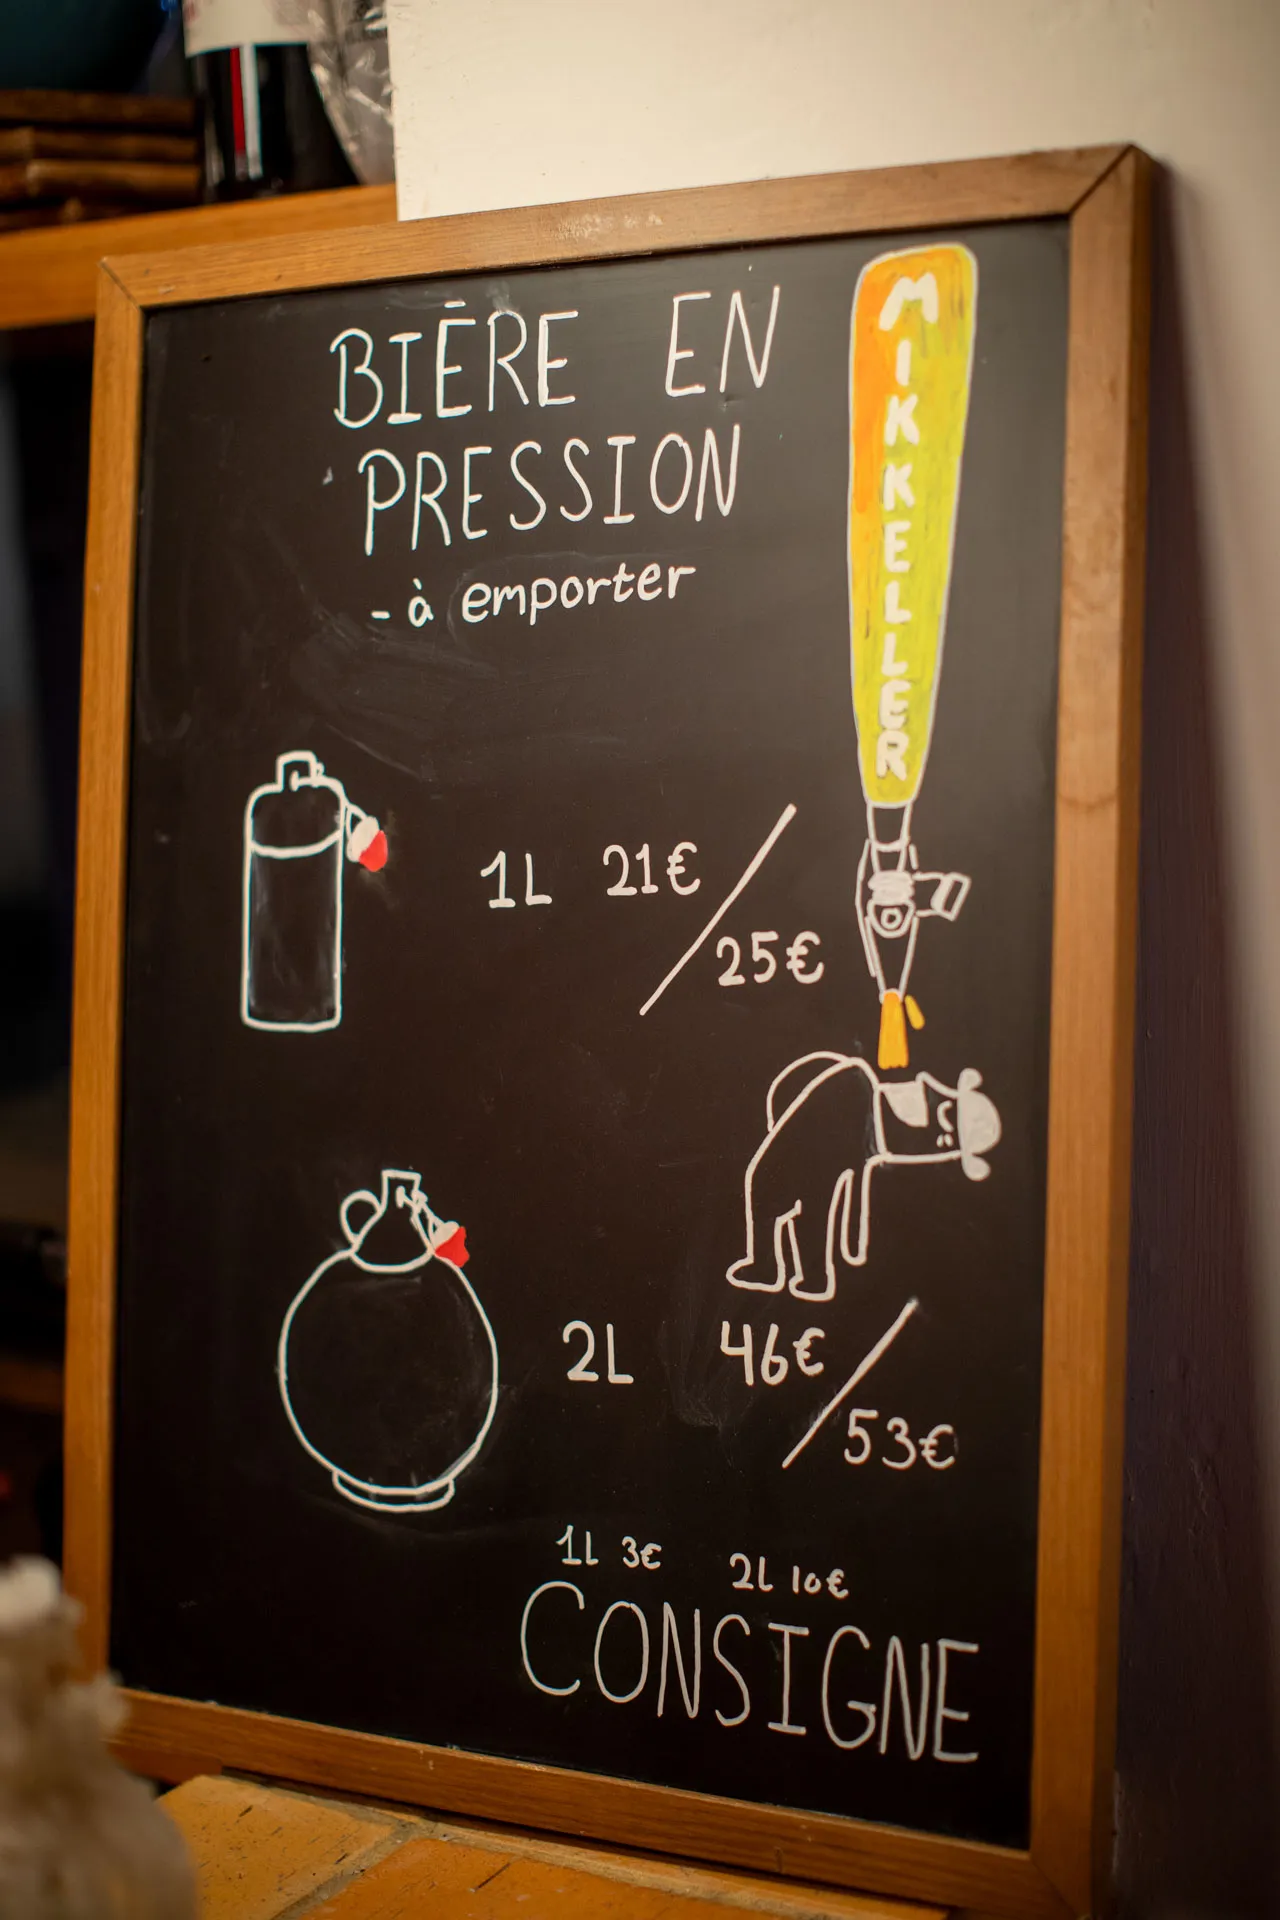 BIÈRE EN
PRESSION
- à emporter
MIKKELLER
1L 21€ / 25€
2L 46€ / 53€
1L 3€ 2L 10€
CONSIGNE